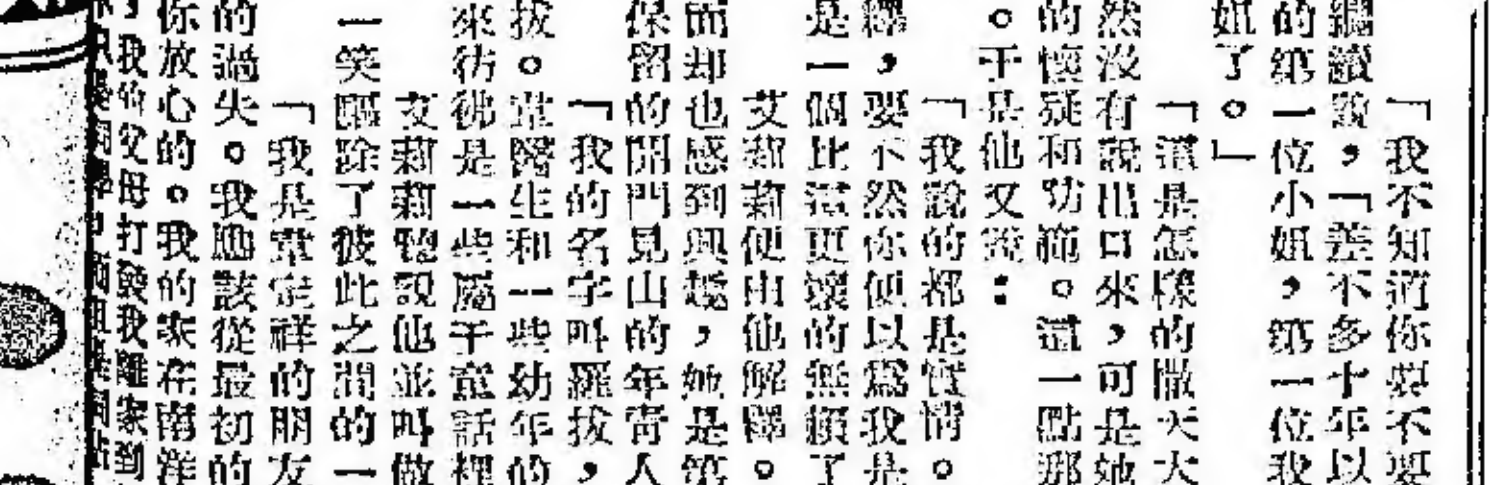 「我不知道你要不要
繼續說,「差不多十年以
的第一位小姐,第一位我
姐了。」
「這是怎樣的撒天大
然沒有說出口來,可是她
的懷疑和防範。這一點那
。于是他又說:
「我說的都是實情。
釋,要不然你便以爲我是
是一個比這更壞的無賴了
艾莉莉便由他解釋。
而却也感到興趣,她是第
保留的開門見山的年青人
「我的名字叫羅拔,
拔。韋醫生和一些幼年的
來彷彿是一些屬于童話裡
艾莉莉聽說他並叫做
一笑驅除了彼此之間的一
「我是韋定祥的朋友
的過失。我應該從最初的
你放心的。我的家在南洋
了我的父母打發我離家到